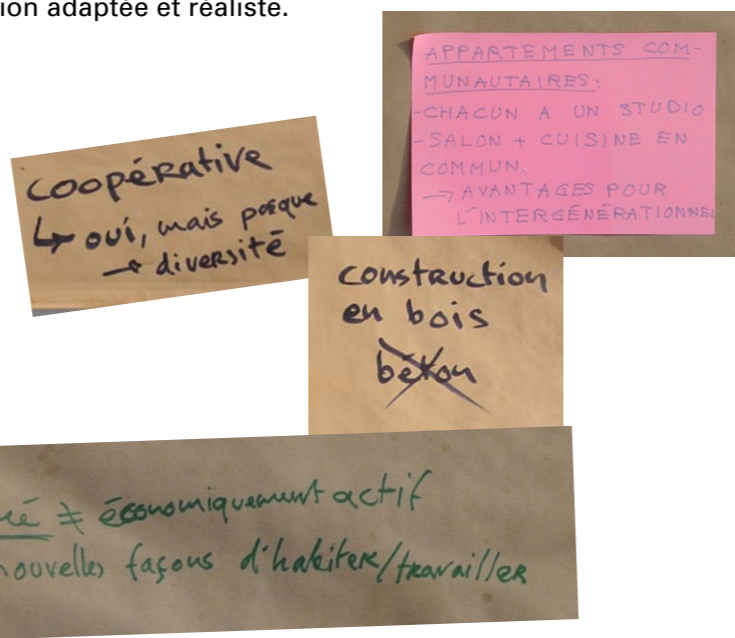 ion adaptée et réaliste.
APPARTEMENTS COM-
MUNAUTAIRES:
-CHACUN A UN STUDIO
-SALON + CUISINE EN
COMMUN.
→ AVANTAGES POUR
L'INTERGÉNÉRATIONNEL
coopérative
↳ oui, mais
→ diversité
construction
en bois
béton
≠ économiquement actif
nouvelles façons d'habiter/travailler